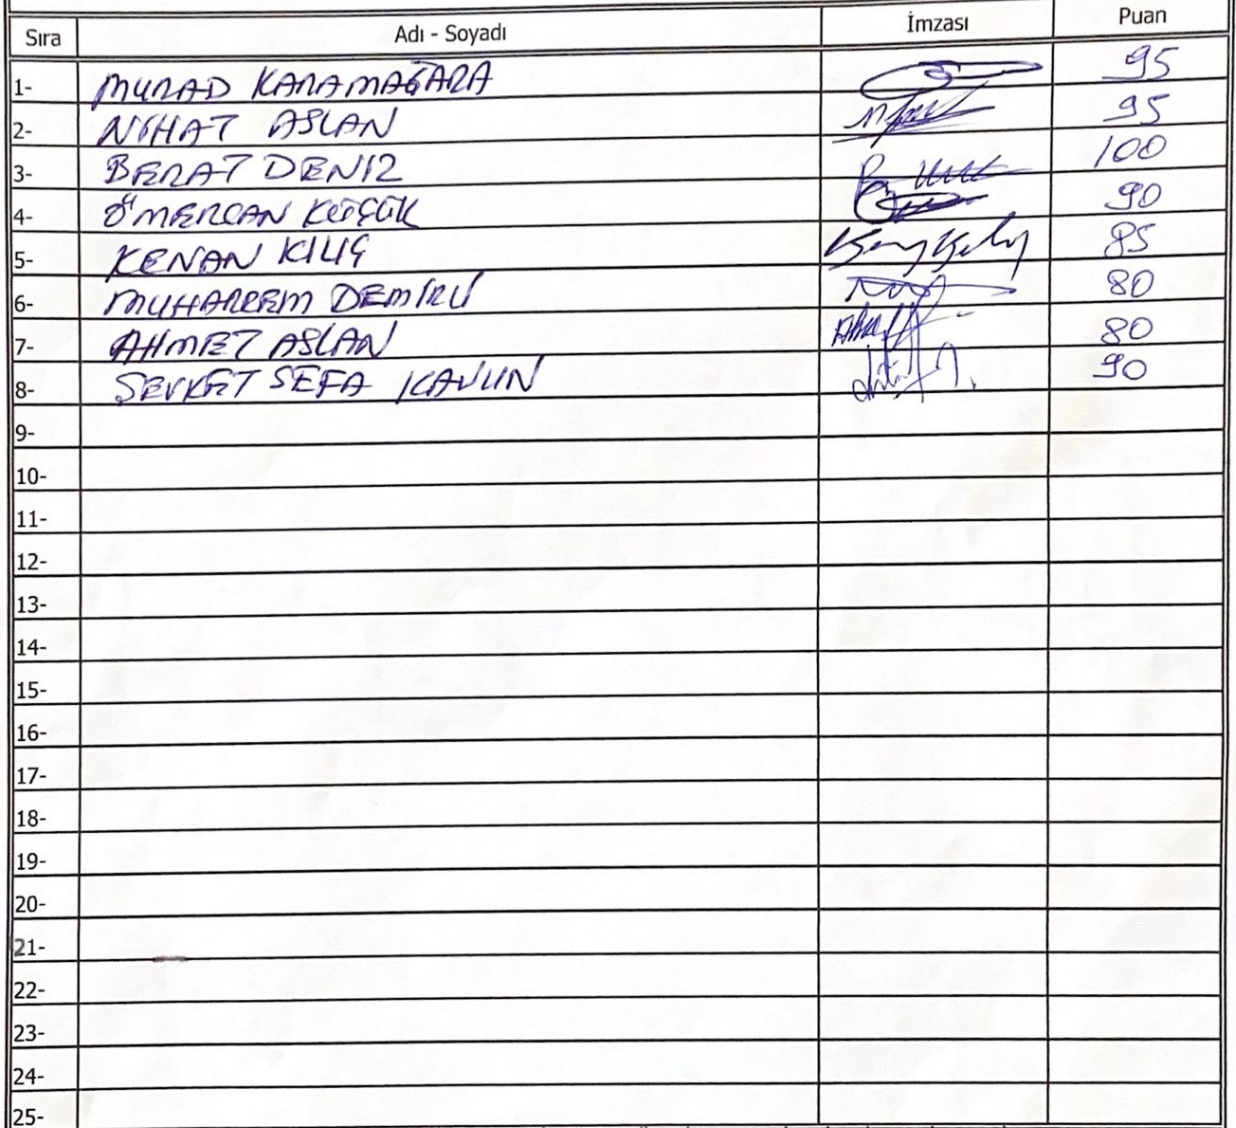 Sıra Adı - Soyadı İmzası Puan
1- MURAD KARAMAĞARA 95
2- NİHAT ASLAN 95
3- BERAT DENİZ 100
4- ÖMERCAN KÜÇÜK 90
5- KENAN KILIÇ 85
6- MUHARREM DEMİRLİ 80
7- AHMET ASLAN 80
8- ŞEVKET SEFA KAVUN 90
9-
10-
11-
12-
13-
14-
15-
16-
17-
18-
19-
20-
21-
22-
23-
24-
25-